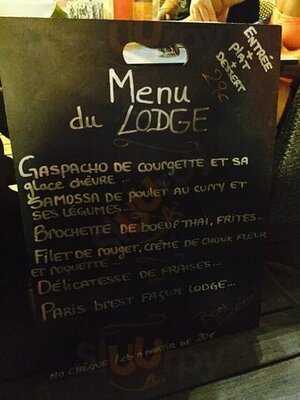 Menu
du LODGE
ENTRÉE
+ PLAT +
DESSERT
GASPACHO DE COURGETTE ET SA
glace chèvre...
SAMOSSA DE POULET AU CURRY ET
SES LEGUMES...
BROCHETTE DE BOEUF THAI, FRITES...
FILET DE ROUGET, CRÈME DE CHOUX FLEUR
ET ROQUETTE...
DÉLICATESSE DE FRAISES...
PARIS BREST FAÇON LODGE...
A PARTIR DE 20€